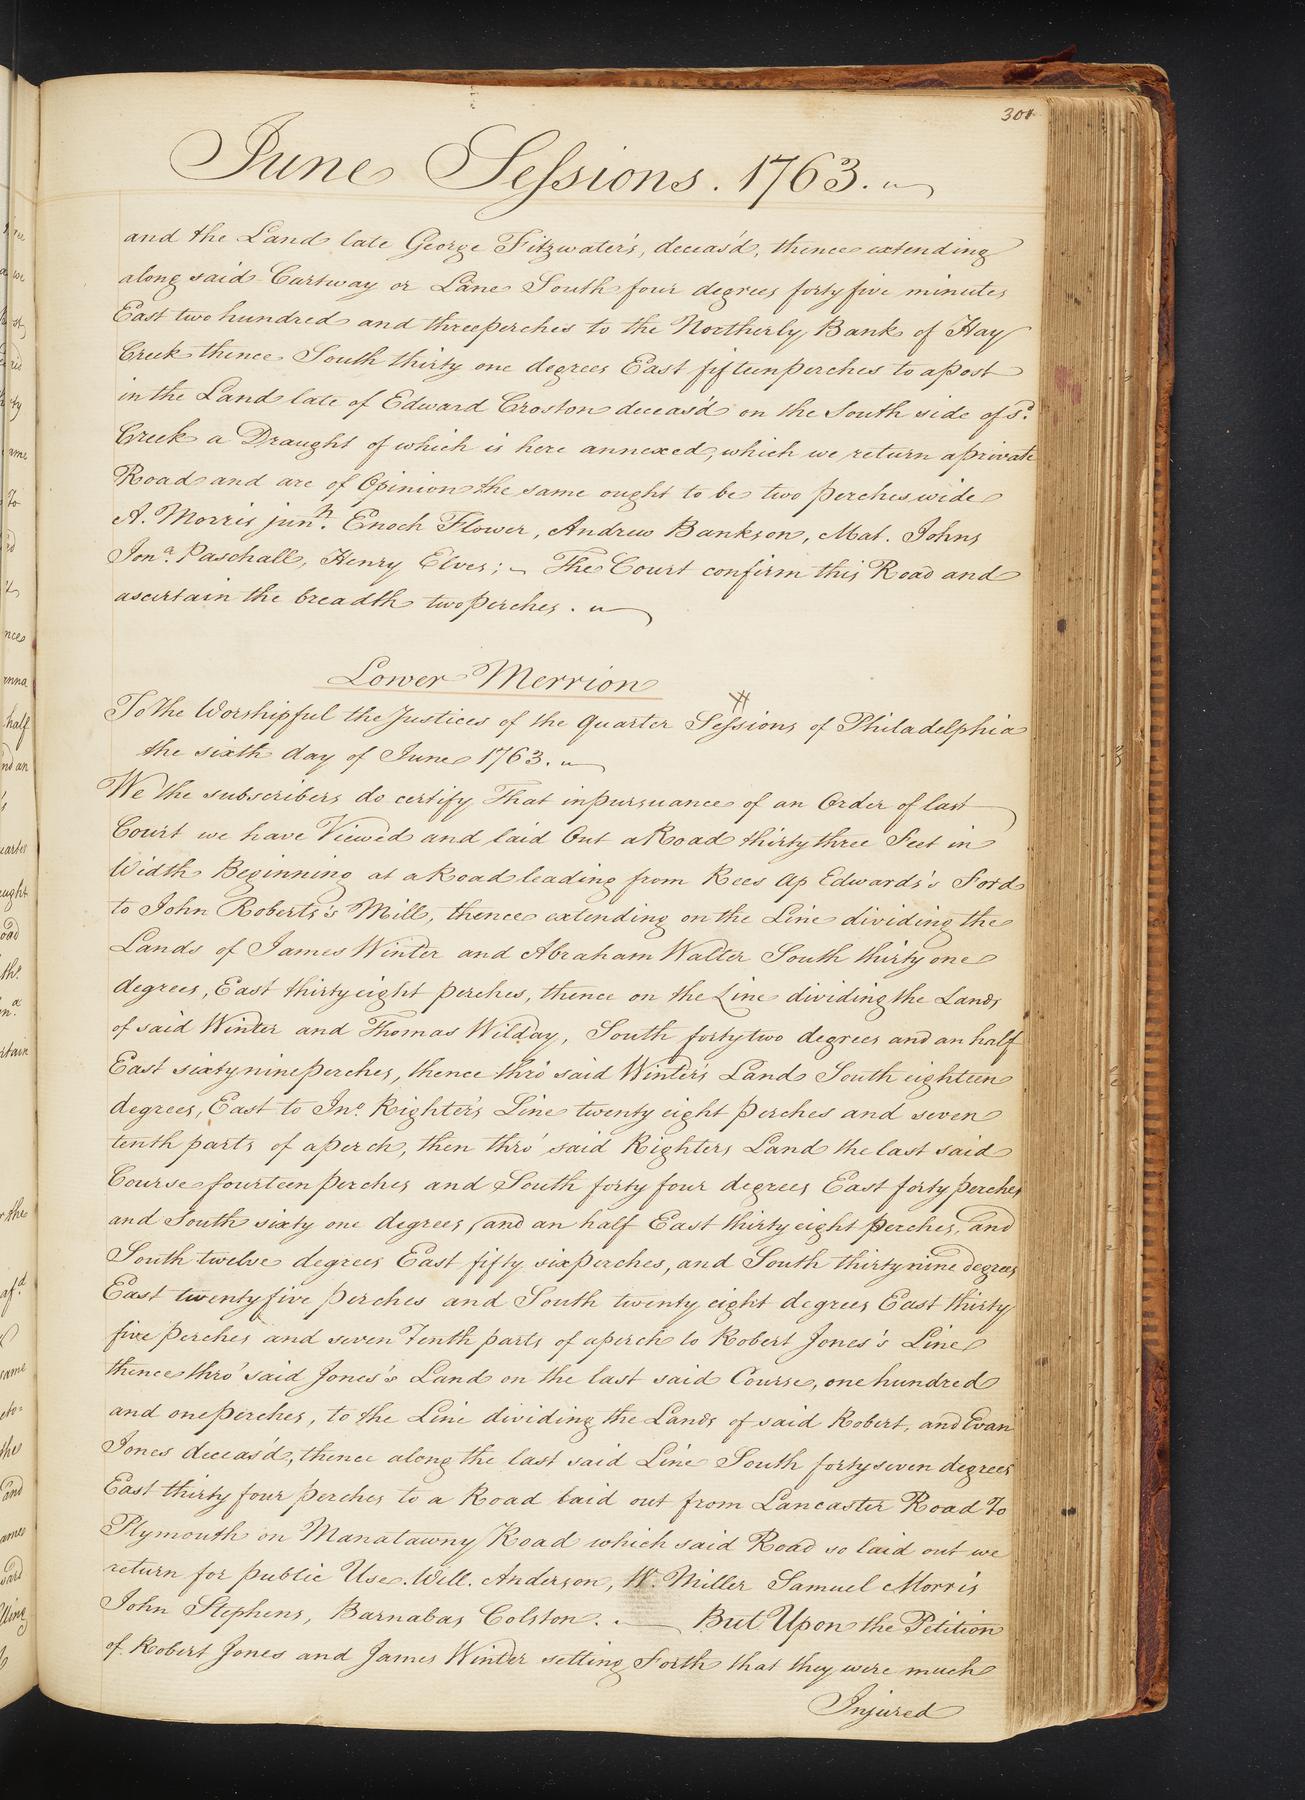 301
June Sessions. 1763.
and the Land late George Fitzwater's, deceas'd, thence extending
along said Cartway or Lane South four degrees forty five minutes
East two hundred and three perches to the Northerly Bank of Hay
Creek thence South thirty one degrees East fifteen perches to a post
in the Land late of Edward Croston deceas'd on the South side of sd.
Creek a Draught of which is here annexed, which we return a private
Road and are of Opinion the same ought to be two perches wide
A. Morris junr. Enoch Flower, Andrew Bankson, Mat. Johns
Jona. Paschall, Henry Elves; The Court confirm this Road and
ascertain the breadth two perches.
Lower Merrion
To the Worshipful the Justices of the Quarter Sessions of Philadelphia
the sixth day of June 1763.
We the subscribers do certify That in pursuance of an Order of last
Court we have Viewed and laid Out a Road thirty three Feet in
Width Beginning at a Road leading from Rees Ap Edwards's Ford
to John Roberts's Mill, thence extending on the Line dividing the
Lands of James Winter and Abraham Walter South thirty one
degrees, East thirty eight perches, thence on the Line dividing the Lands
of said Winter and Thomas Wilday, South forty two degrees and an half
East sixty nine perches, thence thro' said Winter's Land South eighteen
degrees, East to Jno. Righter's Line twenty eight perches and seven
tenth parts of a perch, then thro' said Righters Land the last said
Course fourteen perches and South forty four degrees East forty perches
and South sixty one degrees, and an half East thirty eight perches, and
South twelve degrees East fifty six perches, and South thirty nine degrees
East twenty five perches and South twenty eight degrees East thirty
five perches and seven Tenth parts of a perch to Robert Jones's Line
thence thro' said Jones's Land on the last said Course, one hundred
and one perches, to the Line dividing the Lands of said Robert, and Evan
Jones deceasd, thence along the last said Line South forty seven degrees
East thirty four perches to a Road laid out from Lancaster Road To
Plymouth on Manatawny Road which said Road so laid out we
return for public Use. Will. Anderson, W. Miller Samuel Morris
John Stephens, Barnabas Colston. But Upon the Petition
of Robert Jones and James Winter setting Forth that they were much
Injured